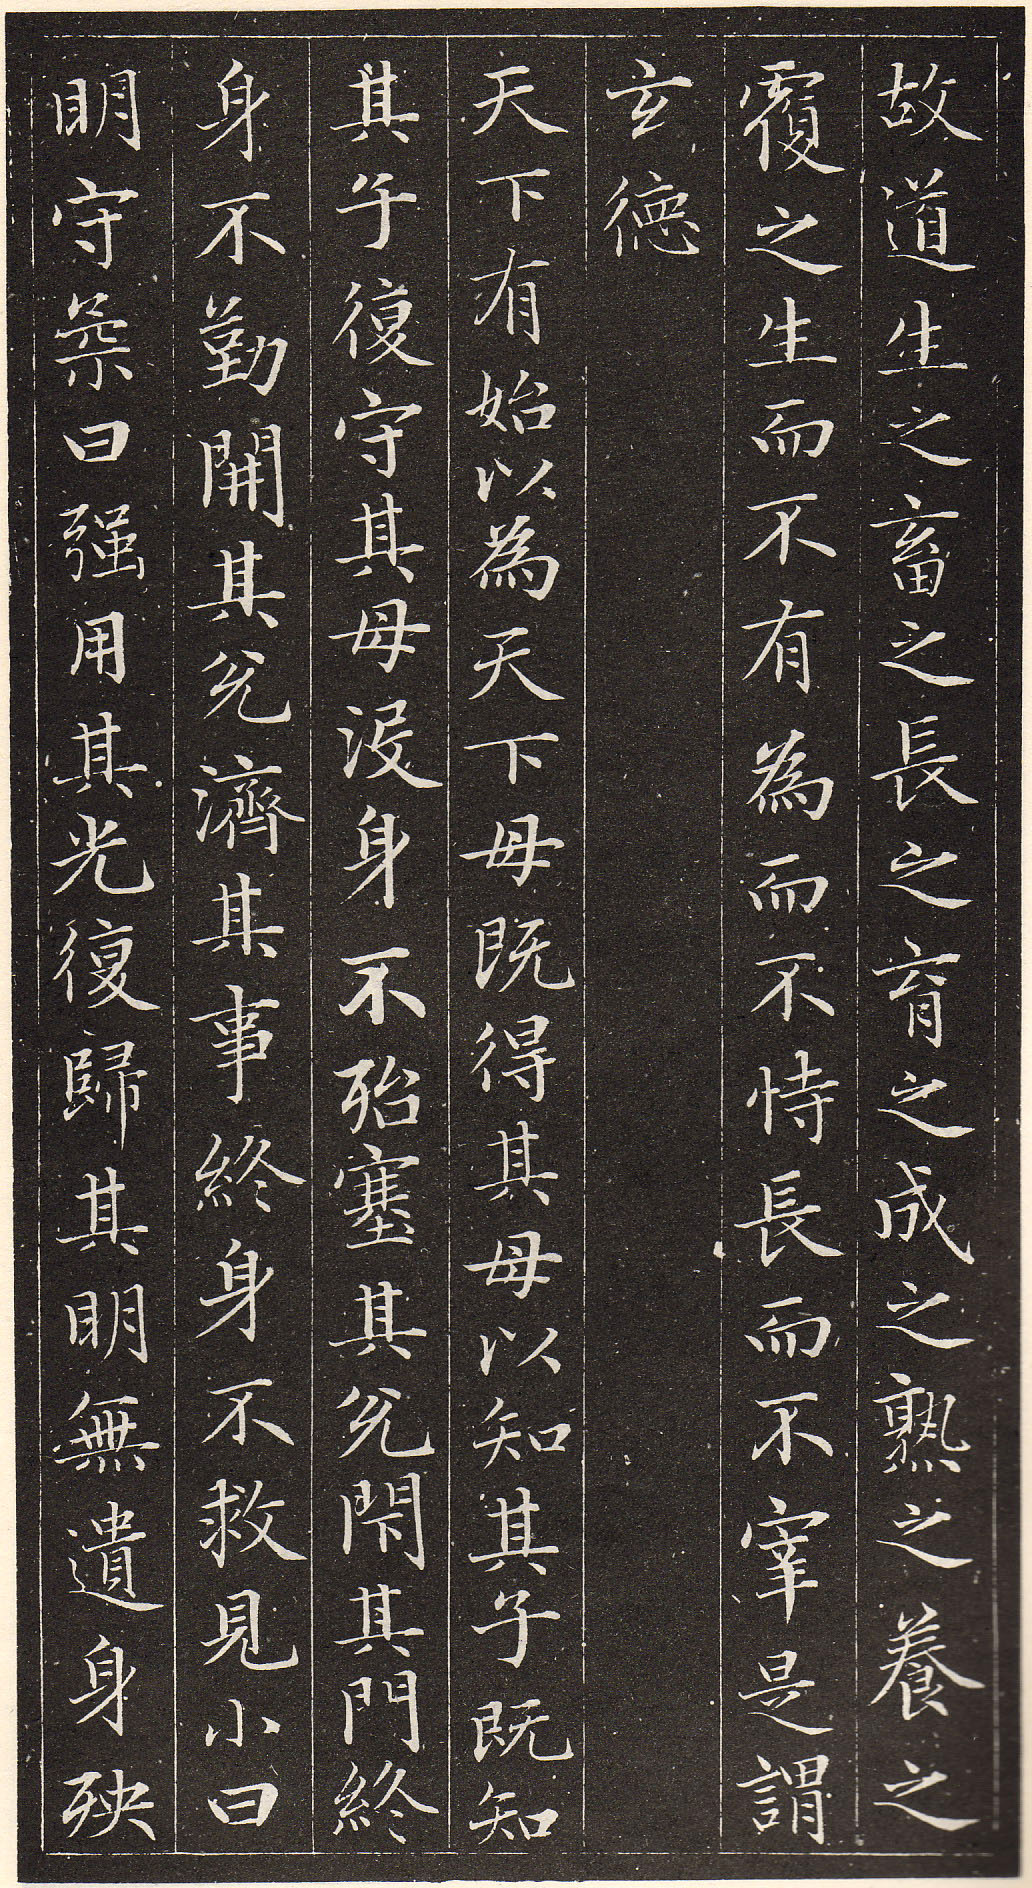 故道生之畜之長之育之成之熟之養之
覆之生而不有為而不恃長而不宰是謂
玄德
天下有始以為天下母既得其母以知其子既知
其子復守其母沒身不殆塞其兌閇其門終
身不勤開其兌濟其事終身不救見小曰
明守柔曰强用其光復歸其明無遺身殃